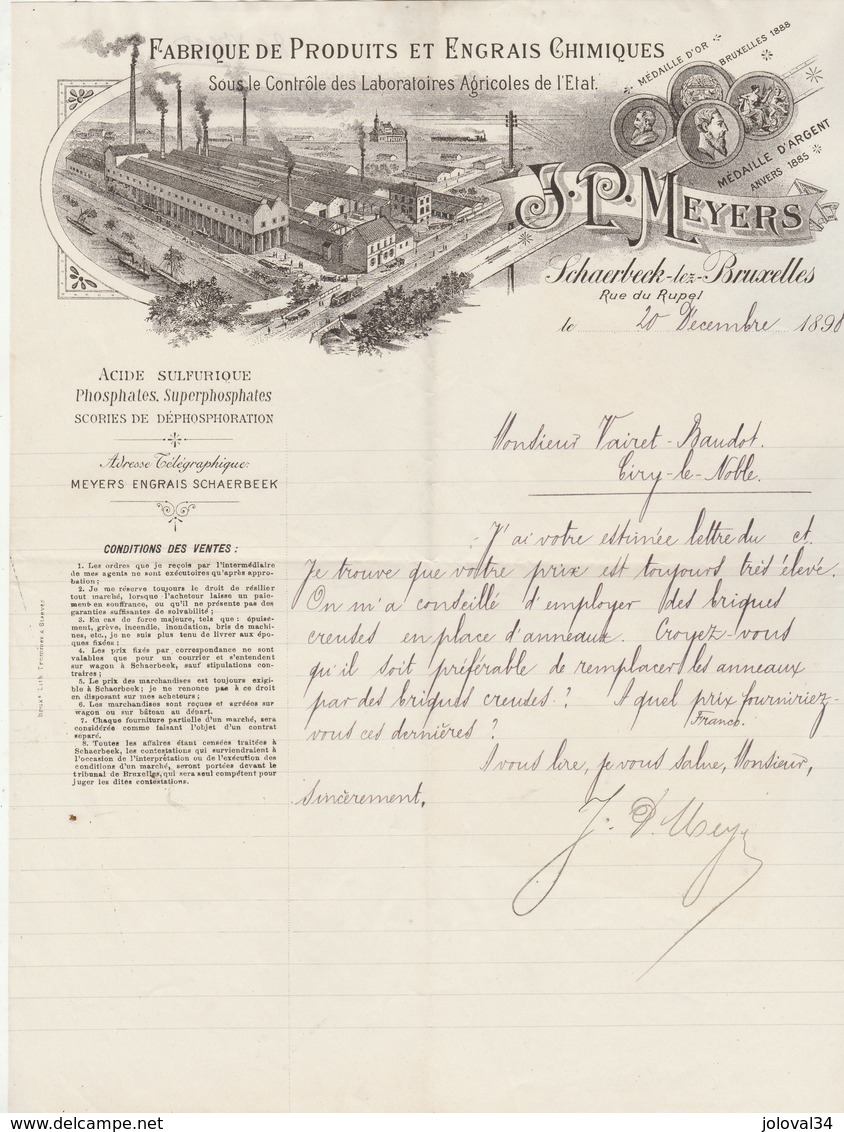 FABRIQUE DE PRODUITS ET ENGRAIS CHIMIQUES
Sous le Contrôle des Laboratoires Agricoles de l'Etat.
MÉDAILLE D'OR
BRUXELLES 1888
MÉDAILLE D'ARGENT
ANVERS 1885
J. P. MEYERS
Schaerbeck-lez-Bruxelles
Rue du Rupel
le 20 Décembre 189
ACIDE SULFURIQUE
Phosphates, Superphosphates
SCORIES DE DÉPHOSPHORATION
Adresse Télégraphique:
MEYERS ENGRAIS SCHAERBEEK
CONDITIONS DES VENTES :
1. Les ordres que je reçois par l'intermédiaire
de mes agents ne sont exécutoires qu'après appro-
bation;
2. Je me réserve toujours le droit de résilier
tout marché, lorsque l'acheteur laisse un paie-
ment en souffrance, ou qu'il ne présente pas des
garanties suffisantes de solvabilité;
3. En cas de force majeure, tels que: épuise-
ment, grève, incendie, inondation, bris de machi-
nes, etc., je ne suis plus tenu de livrer aux épo-
ques fixées;
4. Les prix fixés par correspondance ne sont
valables que pour un courrier et s'entendent
sur wagon à Schaerbeek, sauf stipulations con-
traires;
5. Le prix des marchandises est toujours exigi-
ble à Schaerbeek; je ne renonce pas à ce droit
en disposant sur mes acheteurs;
6. Les marchandises sont reçues et agréées sur
wagon ou sur bâteau au départ.
7. Chaque fourniture partielle d'un marché, sera
considérée comme faisant l'objet d'un contrat
séparé.
8. Toutes les affaires étant censées traitées à
Schaerbeek, les contestations qui surviendraient à
l'occasion de l'interprétation ou de l'exécution des
conditions d'un marché, seront portées devant le
tribunal de Bruxelles, qui sera seul compétent pour
juger les dites contestations.
Monsieur Vairet-Baudot.
Ciry-le-Noble.
J'ai votre estimée lettre du ct.
Je trouve que votre prix est toujours très élevé.
On m'a conseillé d'employer des briques
creuses en place d'anneaux. Croyez-vous
qu'il soit préférable de remplacer les anneaux
par des briques creuses? A quel prix fourniriez-
vous ces dernières? Franco.
A vous lire, je vous salue, Monsieur,
sincèrement.
J. P. Meyers
www.delcampe.net
joloval34